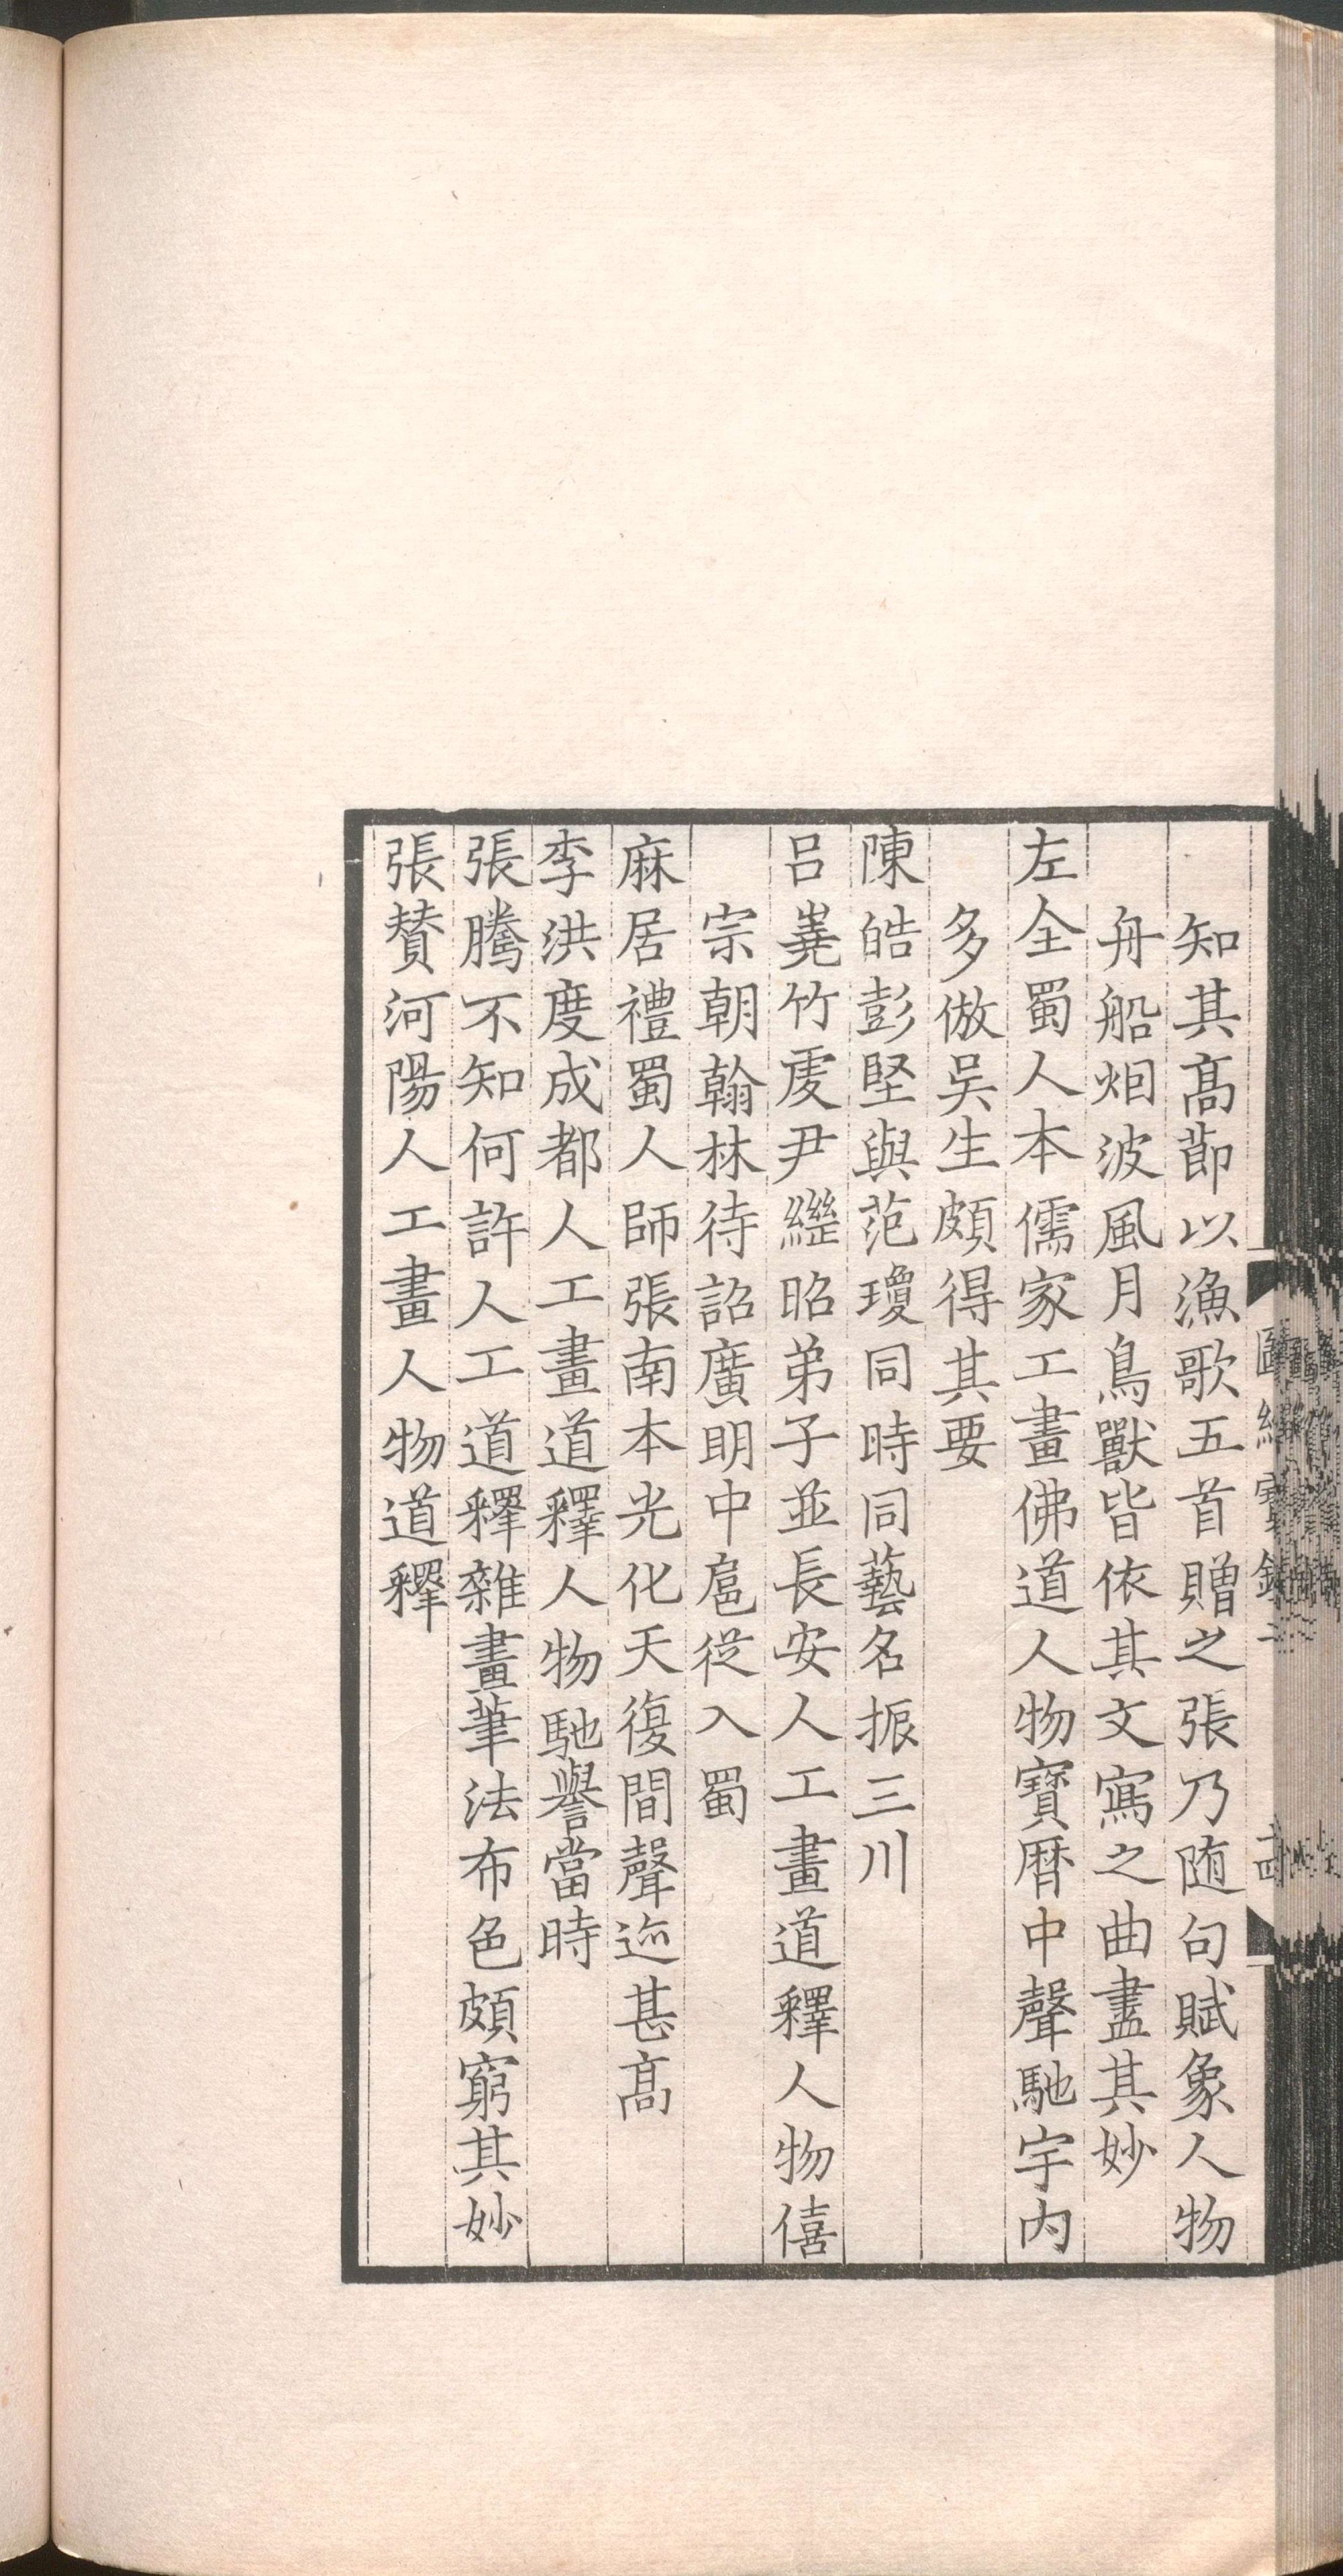 知其髙節以漁歌五首贈之張乃随句賦象人物
舟船烟波風月鳥獸皆依其文寫之曲盡其妙
左全蜀人本儒家工畫佛道人物寶曆中聲馳宇内
多倣吴生頗得其要
陳皓彭堅與范瓊同時同藝名振三川
吕嶤竹虔尹繼昭弟子並長安人工畫道釋人物僖
宗朝翰林待詔廣明中扈從入蜀
麻居禮蜀人師張南本光化天復間聲迹甚髙
李洪度成都人工畫道釋人物馳譽當時
張騰不知何許人工道釋雜畫筆法布色頗窮其妙
張贊河陽人工畫人物道釋
圖繪寳鑑二
十四